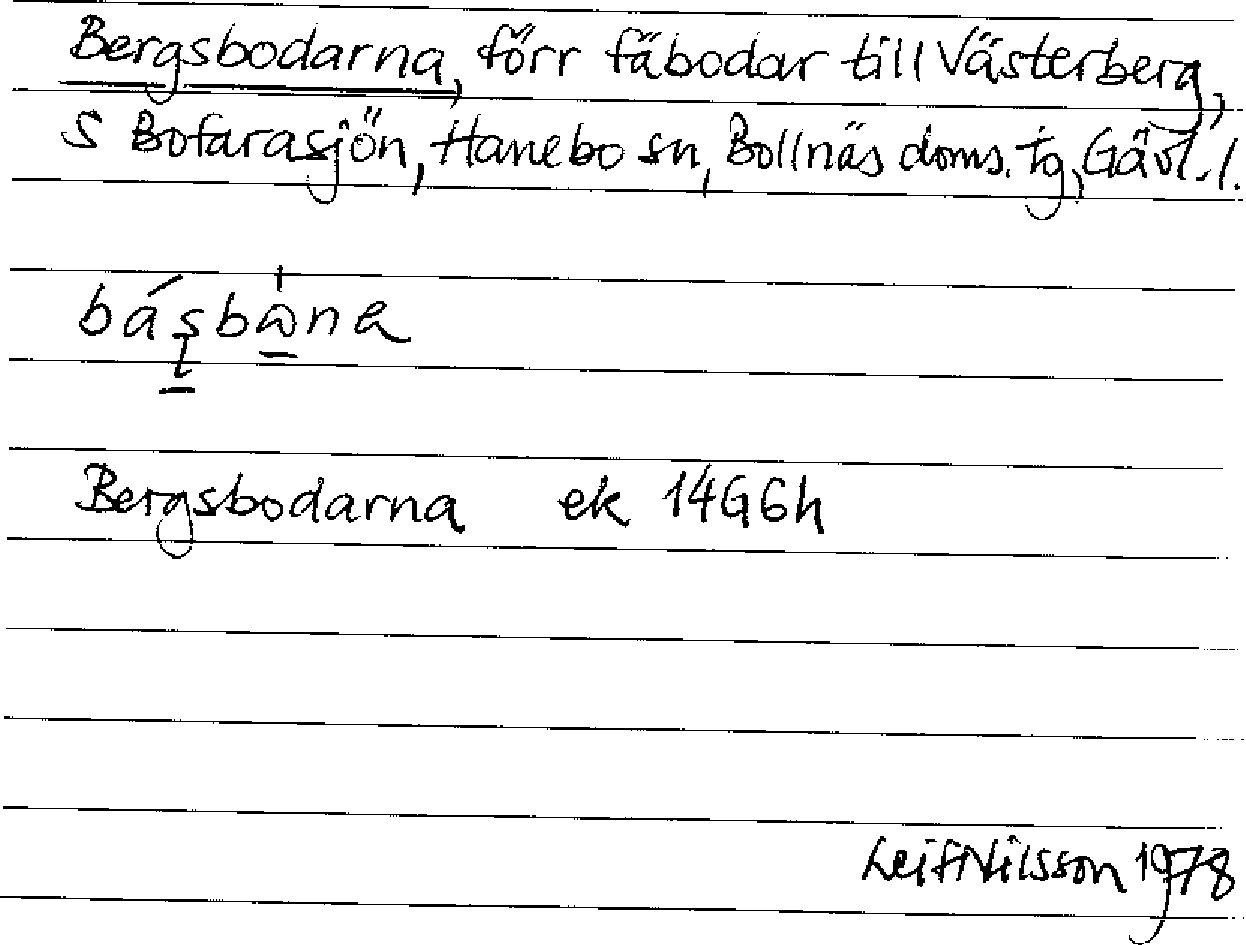 Bergsbodarna, förr fäbodar till Västerberg,
S Bofarasjön, Hanebo sn, Bollnäs doms. tg, Gävl. l.
Bergsbodarna ek 14G6h
Leif Nilsson 1978